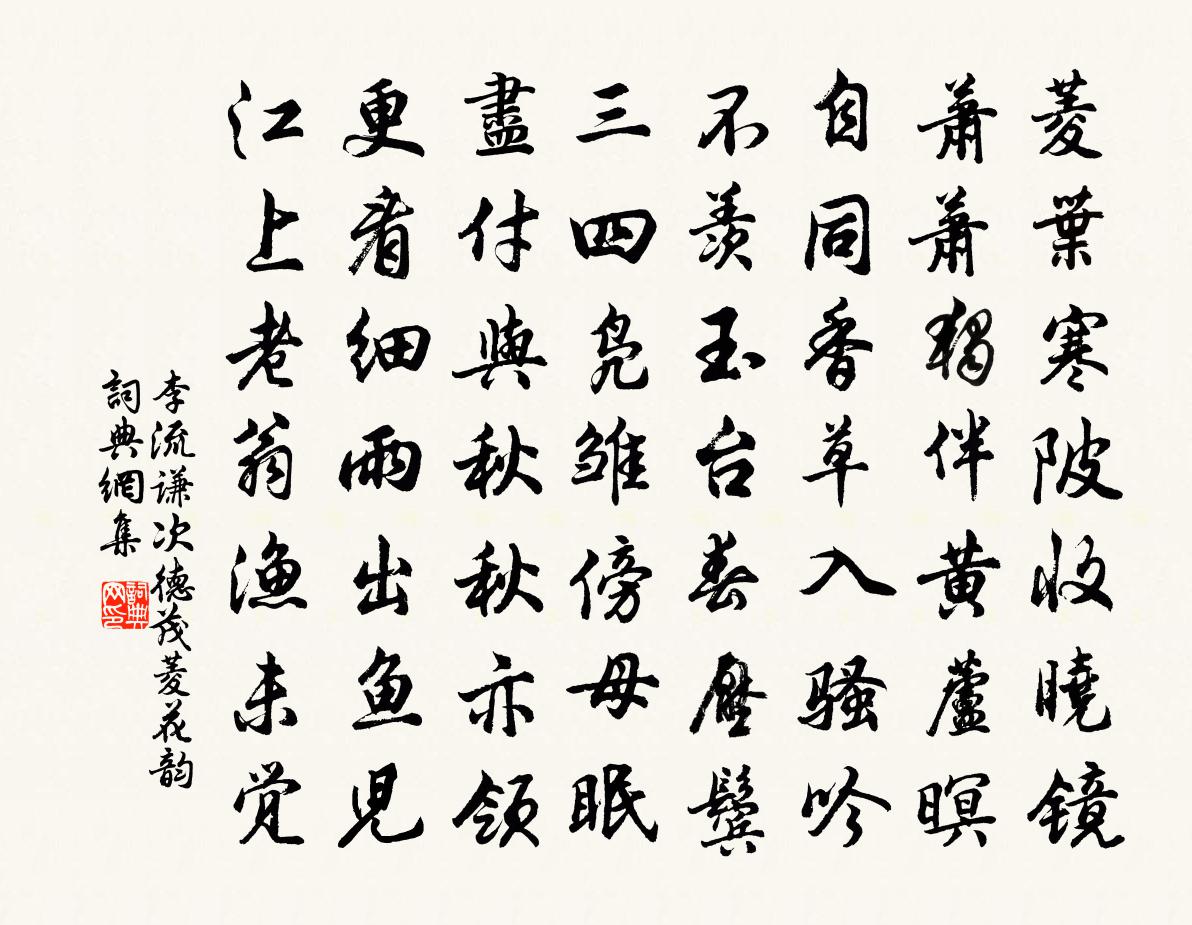 菱葉寒陂收曉鏡
蕭蕭獨伴黃蘆暝
自同香草入騷吟
不羨玉台春壓鬢
三四鳧雛傍母眠
盡付與秋秋亦領
更看細雨出魚兒
江上老翁漁未覺
李流謙次德茂菱花韵
詞典網集
詞典网印